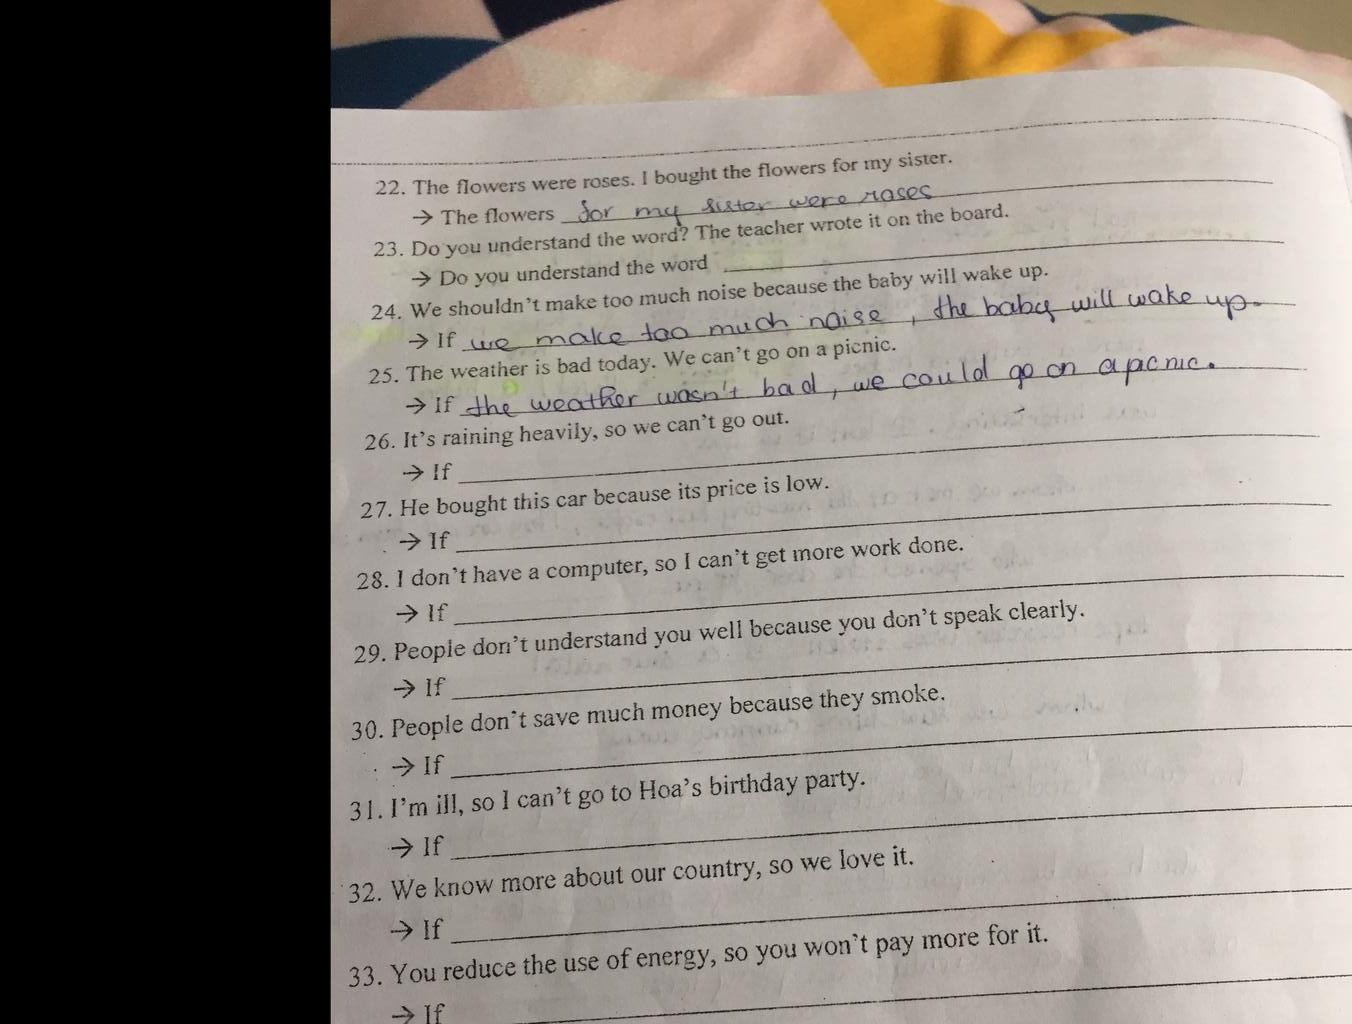 22. The flowers were roses. I bought the flowers for my sister.
→ The flowers for my sister were roses
23. Do you understand the word? The teacher wrote it on the board.
→ Do you understand the word
24. We shouldn't make too much noise because the baby will wake up.
→ If we make too much noise, the baby will wake up.
25. The weather is bad today. We can't go on a picnic.
→ If the weather wasn't bad, we could go on a pcnic.
26. It's raining heavily, so we can't go out.
→ If
27. He bought this car because its price is low.
→ If
28. I don't have a computer, so I can't get more work done.
→ If
29. People don't understand you well because you don't speak clearly.
→ If
30. People don't save much money because they smoke.
→ If
31. I'm ill, so I can't go to Hoa's birthday party.
→ If
32. We know more about our country, so we love it.
→ If
33. You reduce the use of energy, so you won't pay more for it.
→ If